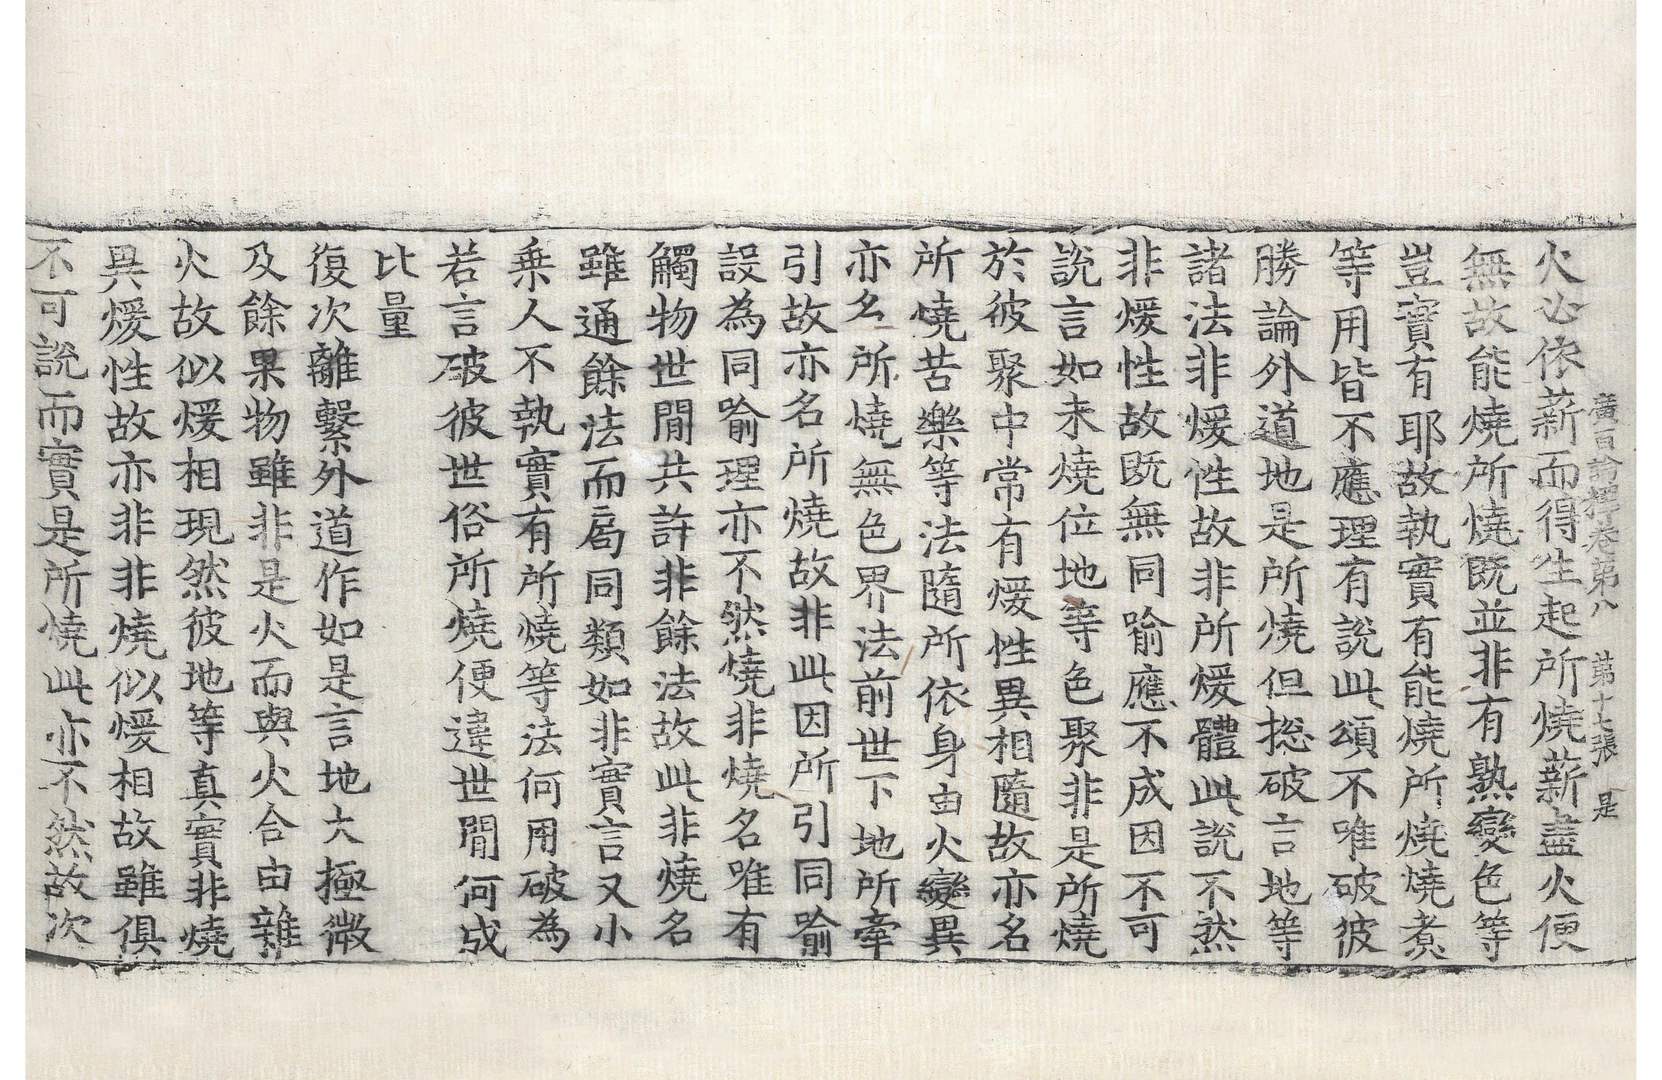 廣百論釋卷第八 第十七張 是
火必依薪而得生起所燒薪盡火便
無故能燒所燒既並非有熟變色等
豈實有耶故執實有能燒所燒燒煮
等用皆不應理有說此頌不唯破彼
勝論外道地是所燒但揔破言地等
諸法非煖性故非所煖體此說不然
非煖性故既無同喻應不成因不可
說言如未燒位地等色聚非是所燒
於彼聚中常有煖性異相隨故亦名
所燒苦樂等法隨所依身由火變異
亦名所燒無色界法前世下地所牽
引故亦名所燒故非此因所引同喻
設為同喻理亦不然燒非燒名唯有
觸物世間共許非餘法故此非燒名
雖通餘法而局同類如非實言又小
乘人不執實有所燒等法何用破為
若言破彼世俗所燒便違世間何成
比量
復次離繫外道作如是言地大極微
及餘果物雖非是火而與火合由雜
火故似煖相現然彼地等真實非燒
異煖性故亦非非燒似煖相故雖俱
不可說而實是所燒此亦不然故次